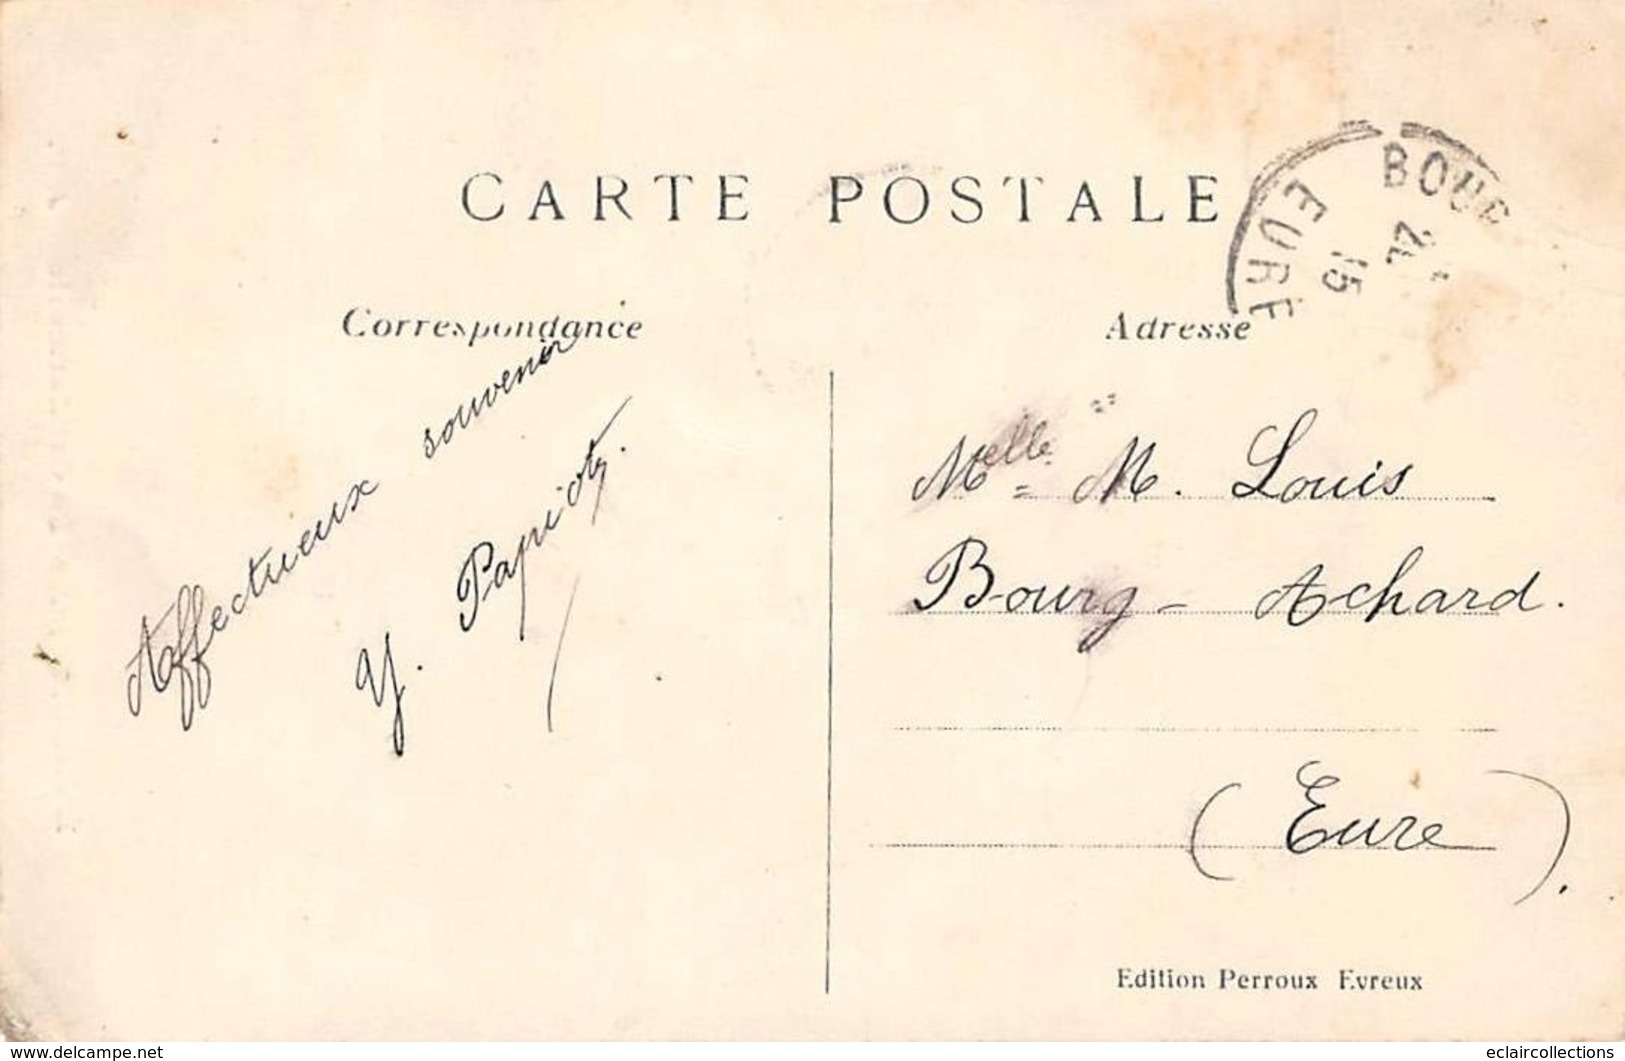 CARTE POSTALE
EURE
15
Correspondance
Adresse
Affectueux souvenir
Y. Papiot.
Melle M. Louis
Bourg-Achard.
(Eure).
Edition Perroux Evreux
www.delcampe.net
eclaircollections